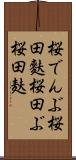 桜でんぶ桜
田麩桜田ぶ
桜田麸